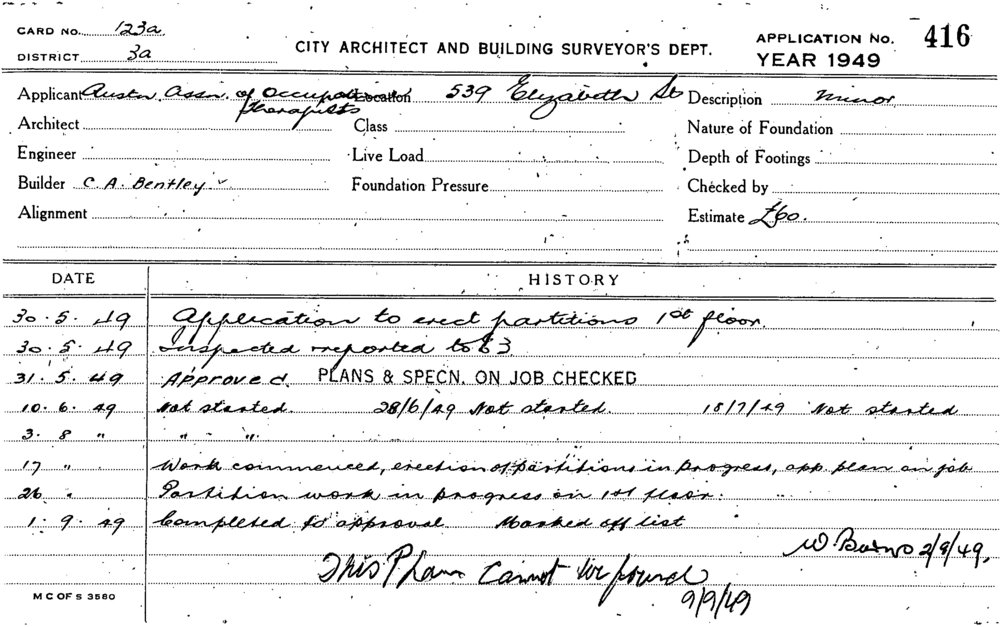 CARD NO. 123a
DISTRICT 3a
CITY ARCHITECT AND BUILDING SURVEYOR'S DEPT.
APPLICATION NO. 416
YEAR 1949
Applicant Austn. Assn. of Occupational therapists Location 539 Elizabeth St Description minor
Architect Class Nature of Foundation
Engineer Live Load Depth of Footings
Builder C. A. Bentley Foundation Pressure Checked by
Alignment Estimate £60.
DATE HISTORY
30. 5. 49 Application to erect partitions 1st floor.
30. 5. 49 Inspected & reported to 3
31. 5. 49 Approved. PLANS & SPECN. ON JOB CHECKED
10. 6. 49 Not started. 28/6/49 Not started. 18/7/49 Not started
3. 8 " " " "
17 " Work commenced, erection of partitions in progress, app. plan on job
26 " Partition work in progress on 1st floor.
1. 9. 49 Completed to approval Marked off list
W. Burns 2/9/49.
This Plan Cannot be found
9/9/49
M C OF S 3580